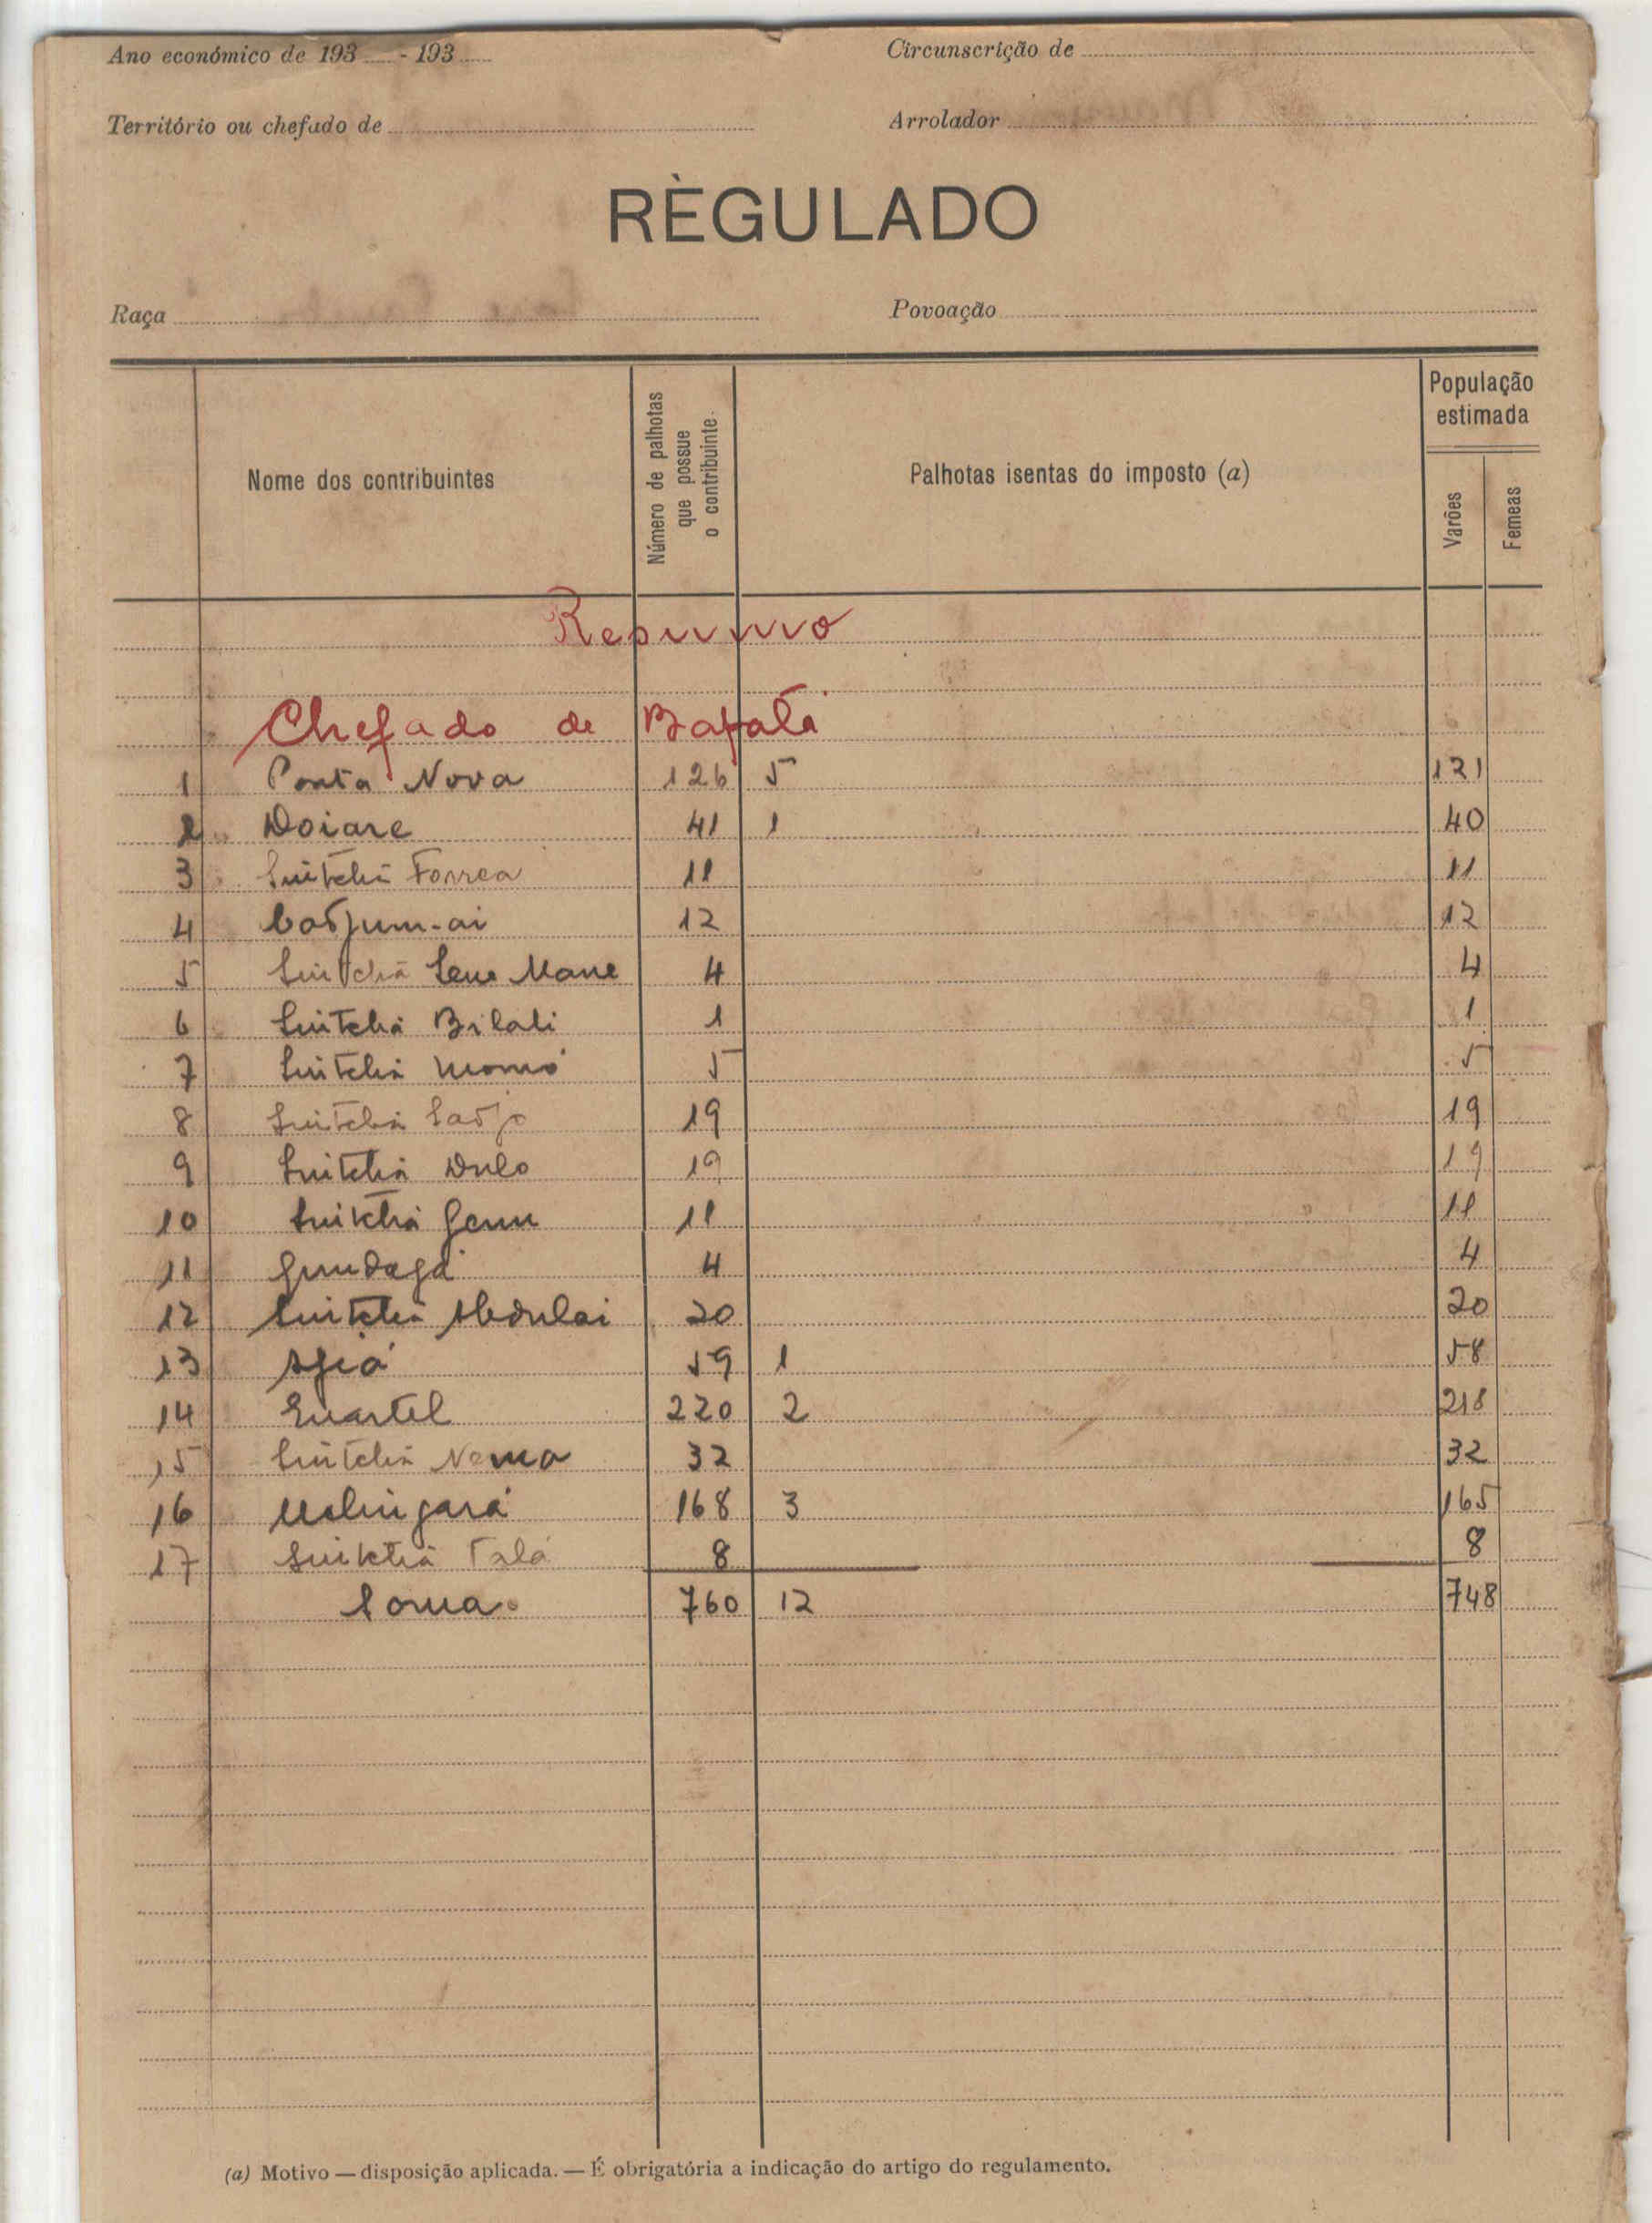 Ano económico de 193 - 193
Circunscrição de
Território ou chefado de
Arrolador
RÈGULADO
Raça
Povoação
Nome dos contribuintes
Número de palhotas que possue o contribuinte.
Palhotas isentas do imposto (a)
População estimada
Varões
Femeas
Resumo
Chefado de Bafatá
1 Ponta Nova 126 5 121
2 Doiare 41 1 40
3 Sintchã Forrea 11 11
4 12 12
5 Sintchã Mane 4 4
6 Sintchã Bilali 1 1
7 Sintchã Momó 5 5
8 Sintchã 19 19
9 Sintchã Dulo 19 19
10 Sintchã 11 11
11 4 4
12 Sintchã Abdulai 20 20
13 Ajiá 59 1 58
14 Quartel 220 2 218
15 Sintchã Nema 32 32
16 168 3 165
17 Sintchã Talá 8 8
Soma 760 12 748
(a) Motivo — disposição aplicada. — É obrigatória a indicação do artigo do regulamento.